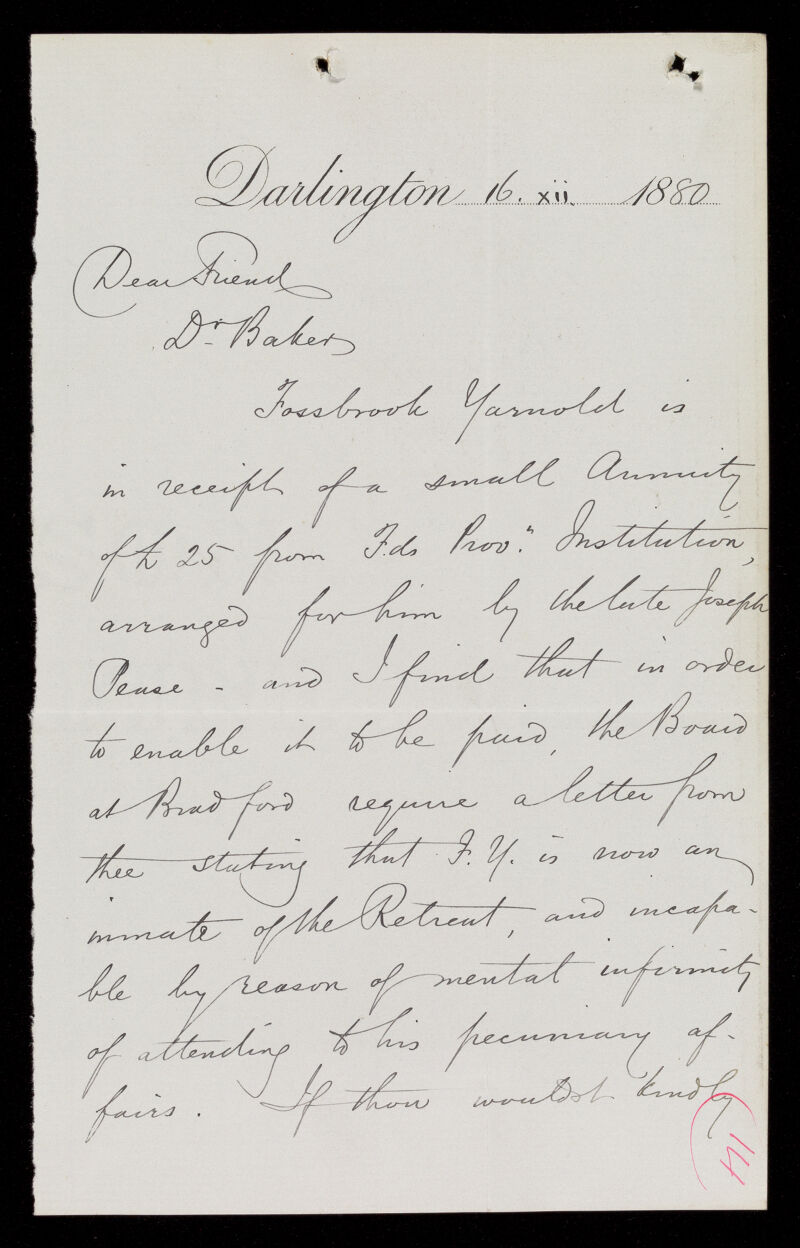 Darlington 16. xii. 1880
Dear Friend
Dr. Baker
Fossbrook Yarnold is
in receipt of a small Annuity
of £25 from F.ds Prov.n Institution,
arranged for him by the late Joseph
Pease - and I find that in order
to enable it to be paid, the Board
at Bradford require a letter from
thee stating that F.Y. is now an
inmate of the Retreat, and incapa-
ble by reason of mental infirmity
of attending to his pecuniary af-
fairs. If thou wouldst kindly
114